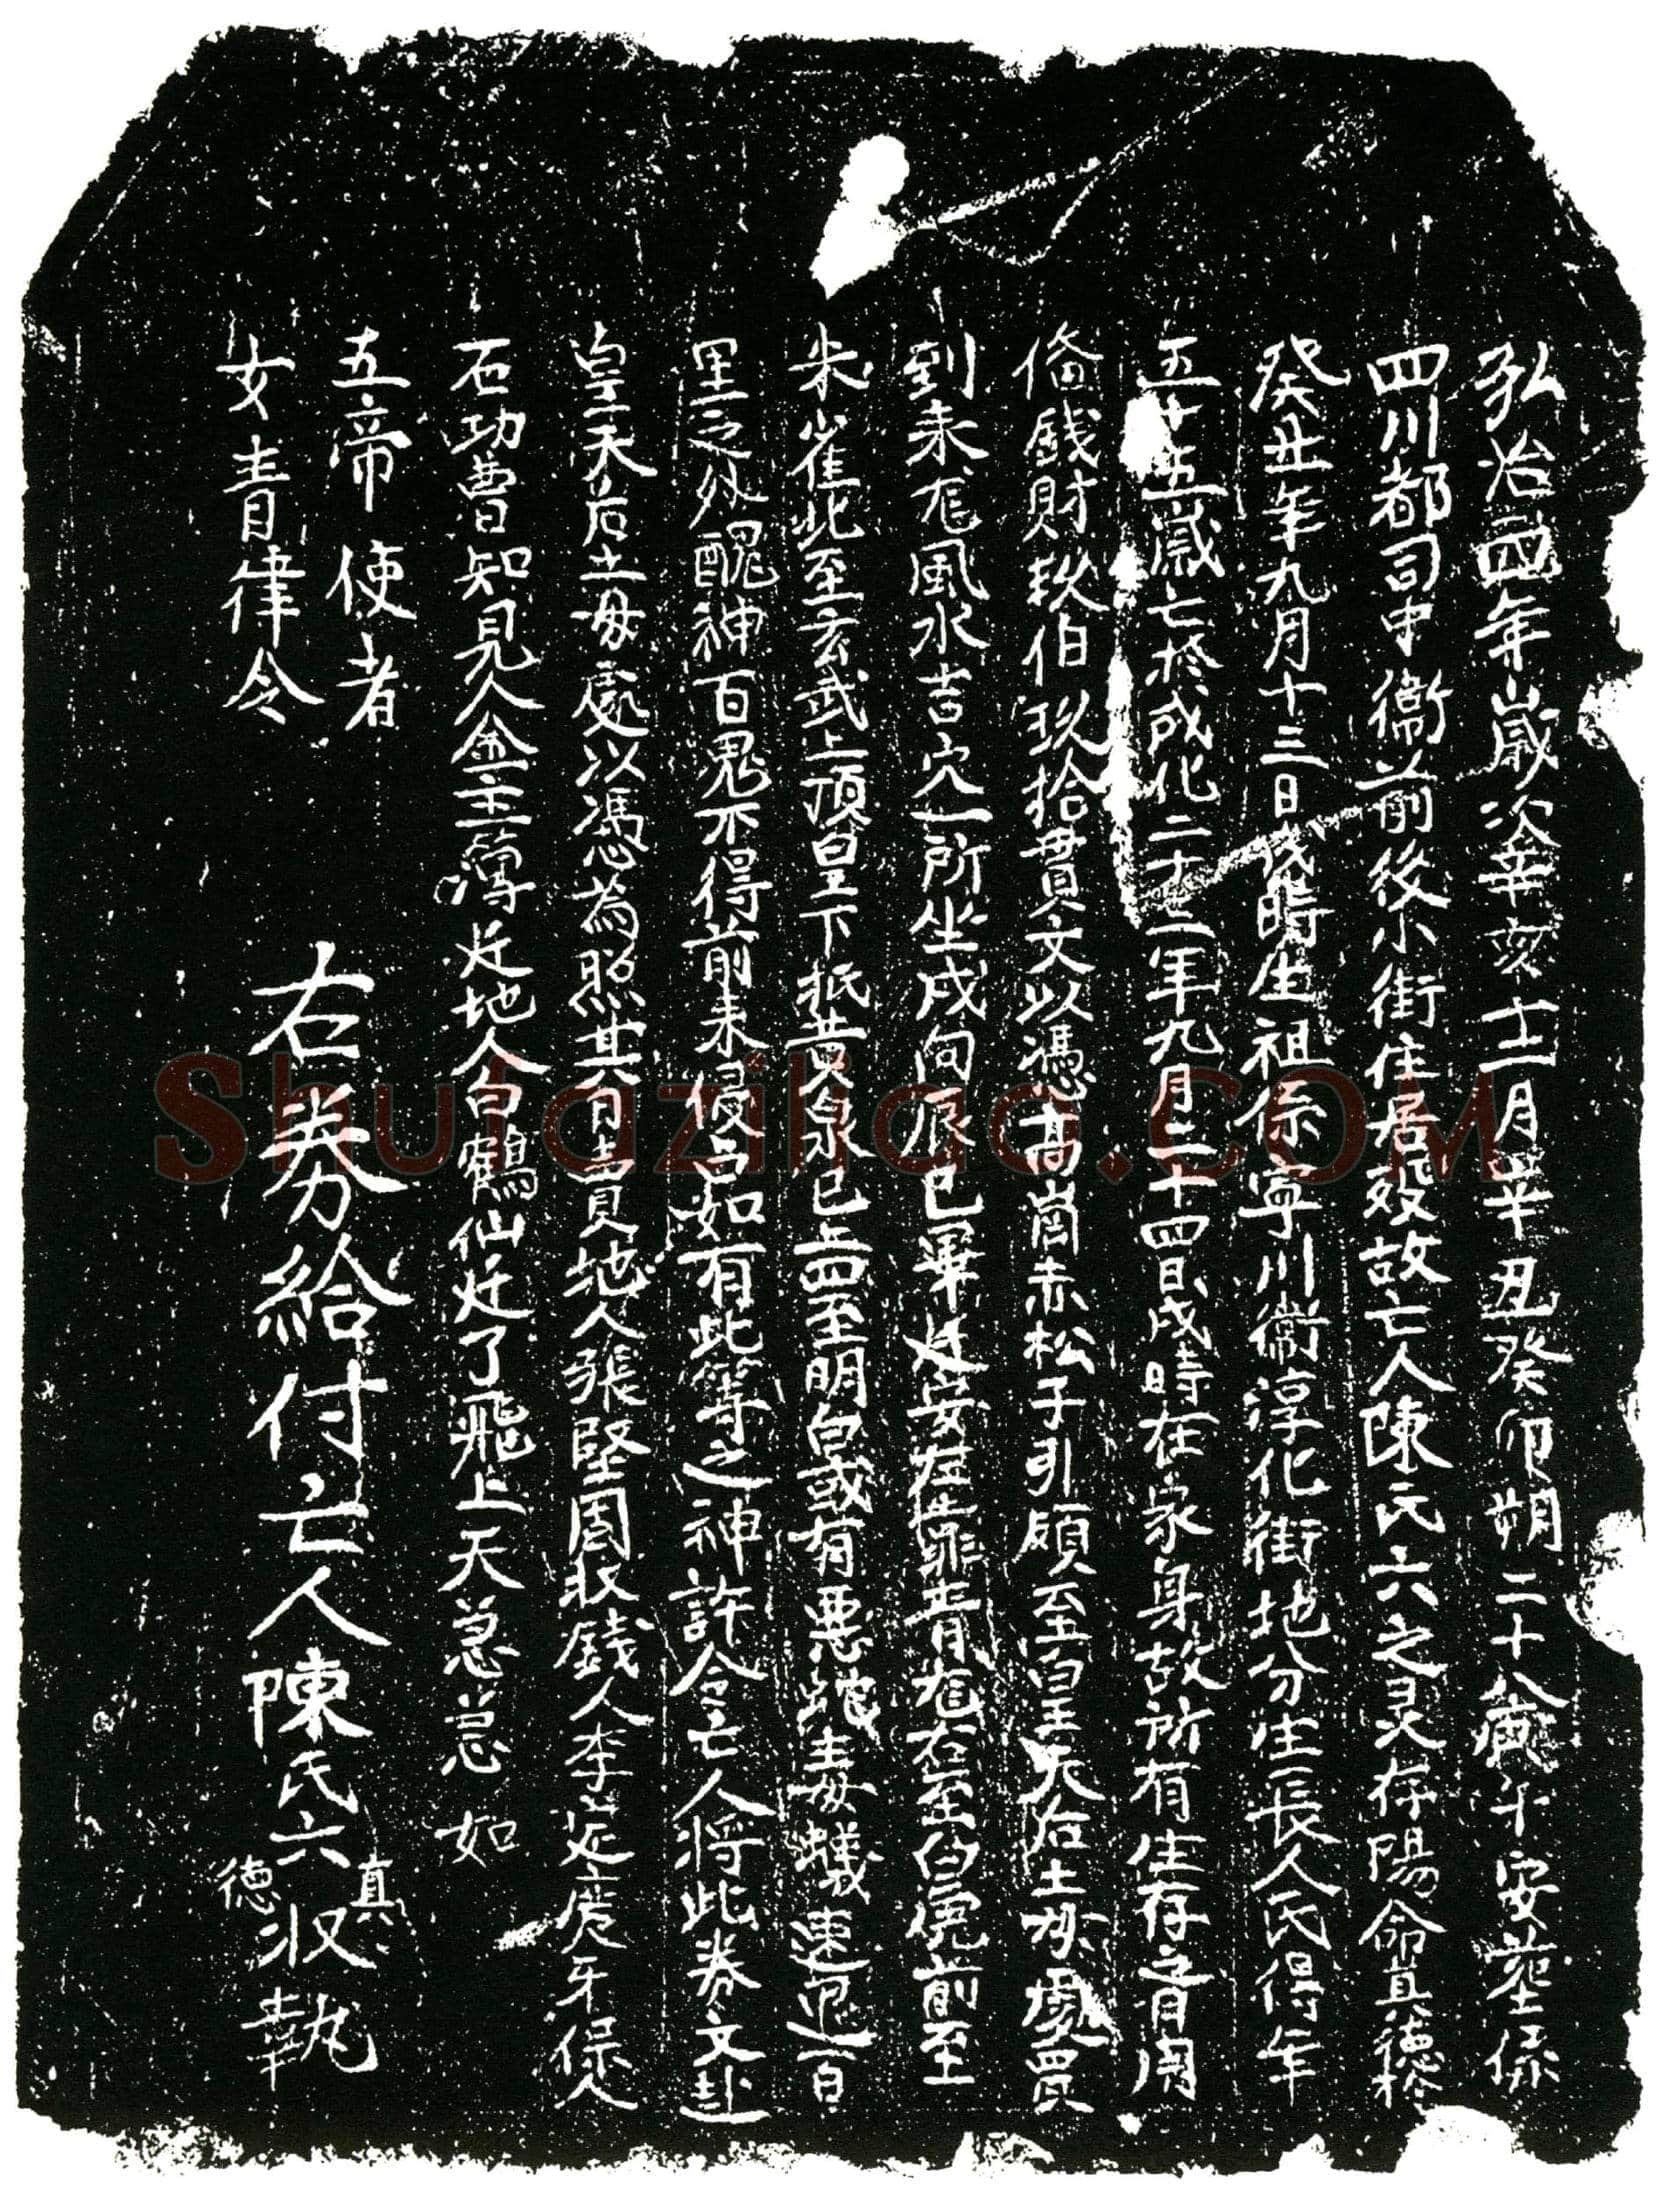 弘治四年歲次辛亥十二月辛丑癸卯朔二十八庚午安塟係
四川都司中衞前後小街住居殁故亡人陳氏六之灵存陽命真德於
癸丑年九月十三日戌時生祖係寧川衞淳化街地分生長人氏得年
五十五歲亡於成化二十三年九月二十四日戌時在家身故所有生存之日用
俻錢財玖伯玖拾貫文以憑髙崗赤松子引領至皇天后土母處買
到来龙風水吉穴一所坐戌向辰已畢迁安左靠青龙右至白虎前至
朱雀北至玄武上頂皇下抵黃泉已上四至明白或有惡蛇毒蟻速退百
里之外醜神百鬼不得前来侵占如有此等之神許令亡人將此券文赴
皇天后土母處以憑為照其有賣地人張堅固收錢人李定度牙保人
石功曹知見人金主簿迁地人白鶴仙迁了飛上天急急 如
五帝使者
女青律令
右券給付亡人陳氏六真德收執
Shufaziliao.COM